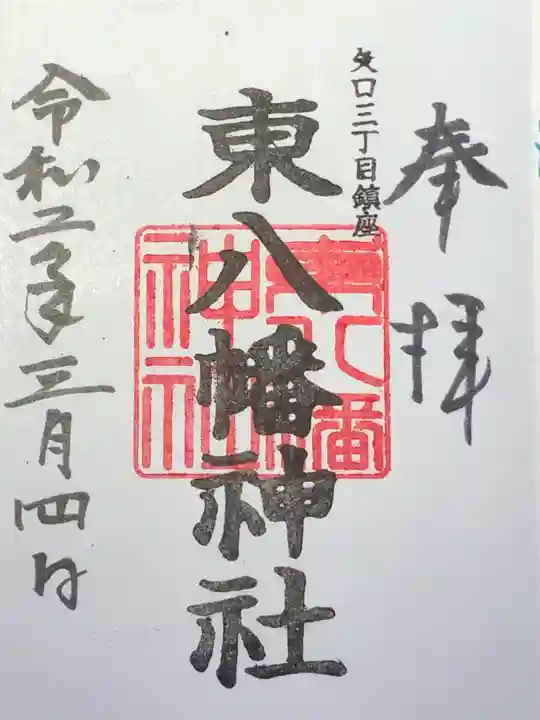 奉拝
矢口三丁目鎮座
東八幡神社
東八幡
神社
令和二年三月四日